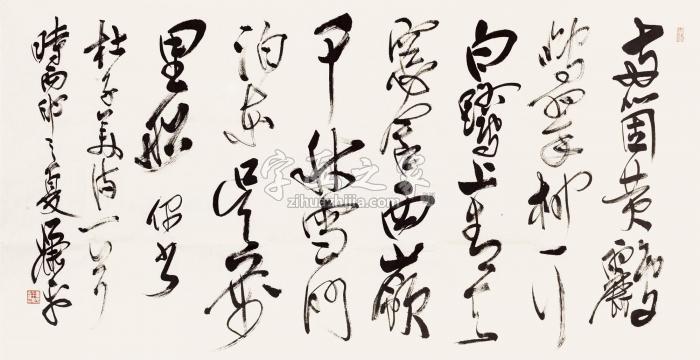 两箇黄鸝
鸣翠柳一行
白鹭上青天
窓含西岭
千秋雪门
泊东吴万
里船 书
杜子美诗一首
时丙之夏
字画之家
www.zihuazhijia.com